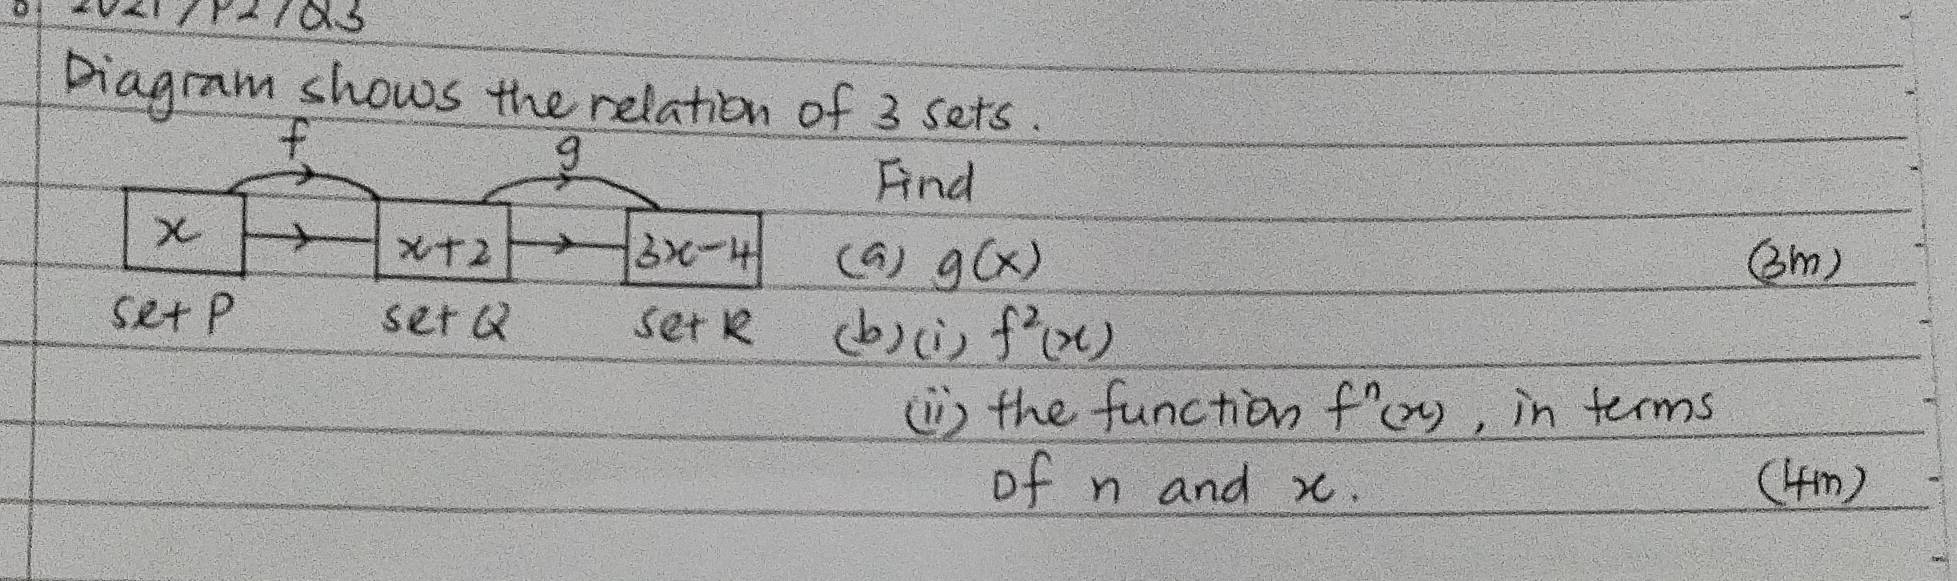 2021/P2/Q3
Diagram shows the relation of 3 sets.
f g
Find
x x+2 3x-4
(a) g(x) (3m)
set P set Q set R
(b)(i) f²(x)
(ii) the function fⁿ(x), in terms
of n and x. (4m)